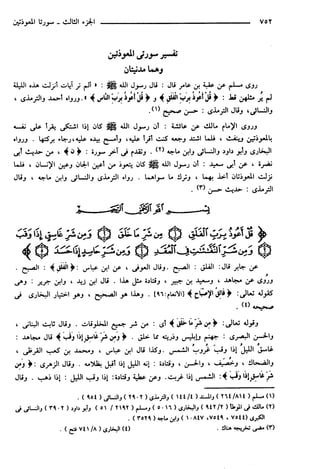 ٧٥٢ الجزء الثالث - سورتا المعوذتين
تفسير سورتي المعوذتين
وهما مدنيتان
روى مسلم عن عقبة بن عامر قال : قال رسول الله ﷺ : « ألم تر آيات أنزلت هذه الليلة
لم يُر مثلهن قط : ﴿ قُلْ أَعُوذُ بِرَبِّ الْفَلَقِ ﴾ و ﴿ قُلْ أَعُوذُ بِرَبِّ النَّاسِ ﴾ » . ورواه أحمد والترمذي ،
والنسائي، وقال الترمذي : حسن صحيح (١).
وروى الإمام مالك عن عائشة : أن رسول الله ﷺ كان إذا اشتكى يقرأ على نفسه
بالمعوذتين وينفث ، فلما اشتد وجعه كنت أقرأ عليه، وأمسح بيده عليه، رجاء بركتها . ورواه
البخاري وأبو داود والنسائي وابن ماجه (٢) . وتقدم في آخر سورة : ﴿ ن ﴾ ، من حديث أبي
نضرة ، عن أبي سعيد : أن رسول الله ﷺ كان يتعوذ من أعين الجان وعين الإنسان ، فلما
نزلت المعوذتان أخذ بهما ، وترك ما سواهما . رواه الترمذي والنسائي وابن ماجه ، وقال
الترمذي : حديث حسن (٣) .
بسم الله الرحمن الرحيم
﴿ قُلْ أَعُوذُ بِرَبِّ الْفَلَقِ ۝ مِن شَرِّ مَا خَلَقَ ۝ وَمِن شَرِّ غَاسِقٍ إِذَا وَقَبَ
۝ وَمِن شَرِّ النَّفَّاثَاتِ فِي الْعُقَدِ ۝ وَمِن شَرِّ حَاسِدٍ إِذَا حَسَدَ ۝ ﴾
عن جابر قال: الفلق : الصبح . وقال العوفي ، عن ابن عباس : ﴿ الْفَلَقِ ﴾ : الصبح .
وروي عن مجاهد ، وسعيد بن جبير ، وقتادة مثل هذا . قال ابن زيد ، وابن جرير : وهي
كقوله تعالى: ﴿ فَالِقُ الْإِصْبَاحِ ﴾ [الأنعام: ٩٦] . وهذا هو الصحيح ، وهو اختيار البخاري في
صحيحه (٤) .
وقوله تعالى: ﴿ مِن شَرِّ مَا خَلَقَ ﴾ أي : من شر جميع المخلوقات . وقال ثابت البناني ،
والحسن البصري : جهنم وإبليس وذريته مما خلق . ﴿ وَمِن شَرِّ غَاسِقٍ إِذَا وَقَبَ ﴾ قال مجاهد :
غاسق الليلُ إذا وقب غُروبُ الشمس . وكذا قال ابن عباس ، ومحمد بن كعب القرظي ،
والضحاك ، وخُصَيف ، والحسن ، وقتادة : إنه الليل إذا أقبل بظلامه . وقال الزهري : ﴿ وَمِن
شَرِّ غَاسِقٍ إِذَا وَقَبَ ﴾ : الشمس إذا غربت . وعن عطية وقتادة: إذا وقب الليل : إذا ذهب . وقال
(١) مسلم ( ٨١٤ / ٢٦٤ ) والمسند ( ٤ / ١٤٤ ) والترمذي ( ٢٩٠٢ ) والنسائي ( ٩٥٤ ) .
(٢) مالك في الموطأ ( ٢ / ٩٤٢ ) والبخاري ( ٥٠١٦ ) ومسلم ( ٢١٩٢ / ٥١ ) وأبو داود ( ٣٩٠٢ ) والنسائي في
الكبرى ( ٧٥٤٤ ، ٧٥٤٩ ، ١٠٨٤٧ ) وابن ماجه ( ٣٥٢٩ ) .
(٣) مضى تخريجه هناك . (٤) البخاري ( ٨ / ٧٤١ فتح ) .